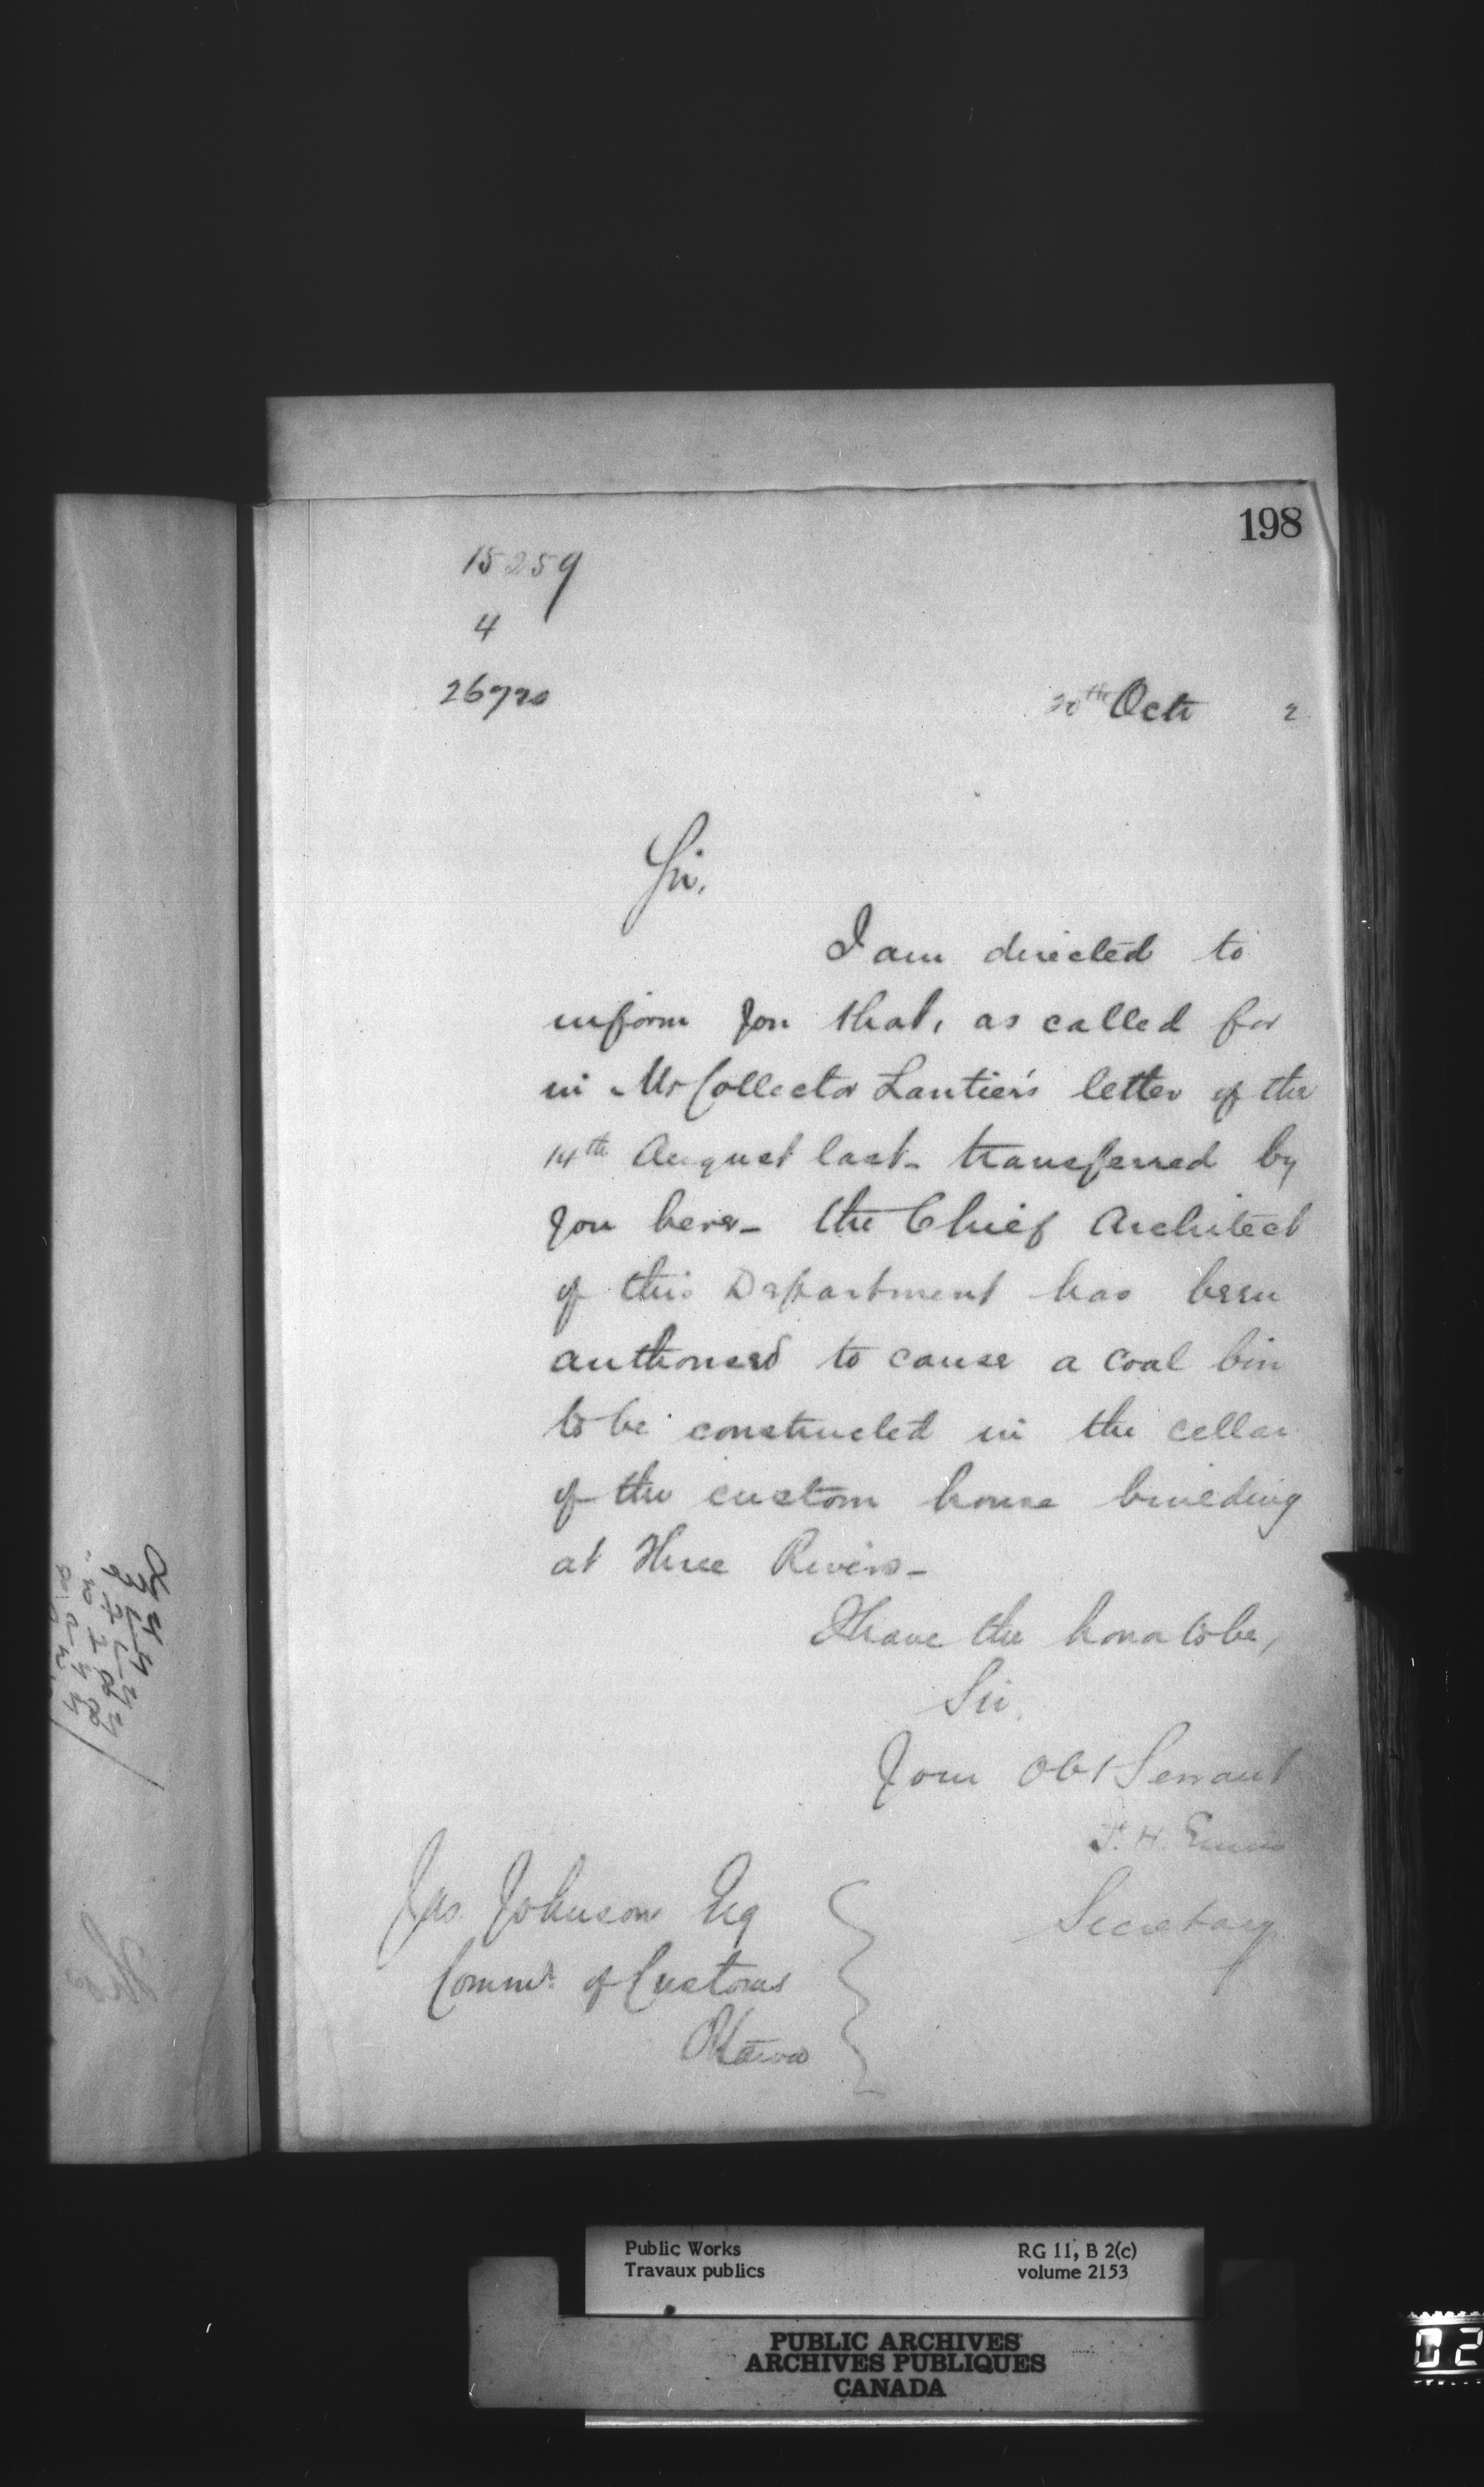 198
15259
4
26720
20th Octr 2
Sir,
I am directed to
inform you that, as called for
in Mr Collector Lantier's letter of the
14th August last - transferred by
you here - the Chief Architect
of this Department has been
authorised to cause a coal bin
to be constructed in the cellar
of the custom house building
at Three Rivers -
I have the honor to be,
Sir,
Your Obt Servant
F. H. Ennis
Secretary
Jas. Johnson Esq
Commr. of Customs
Ottawa
Public Works
Travaux publics
RG 11, B 2(c)
volume 2153
PUBLIC ARCHIVES
ARCHIVES PUBLIQUES
CANADA
02